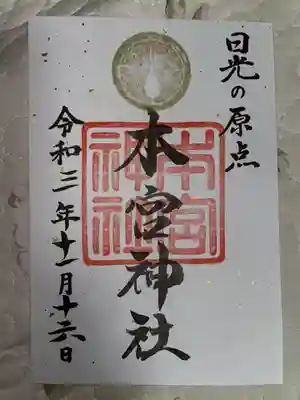 日光の原点
本宮神社
本宮神社
令和三年十一月十六日